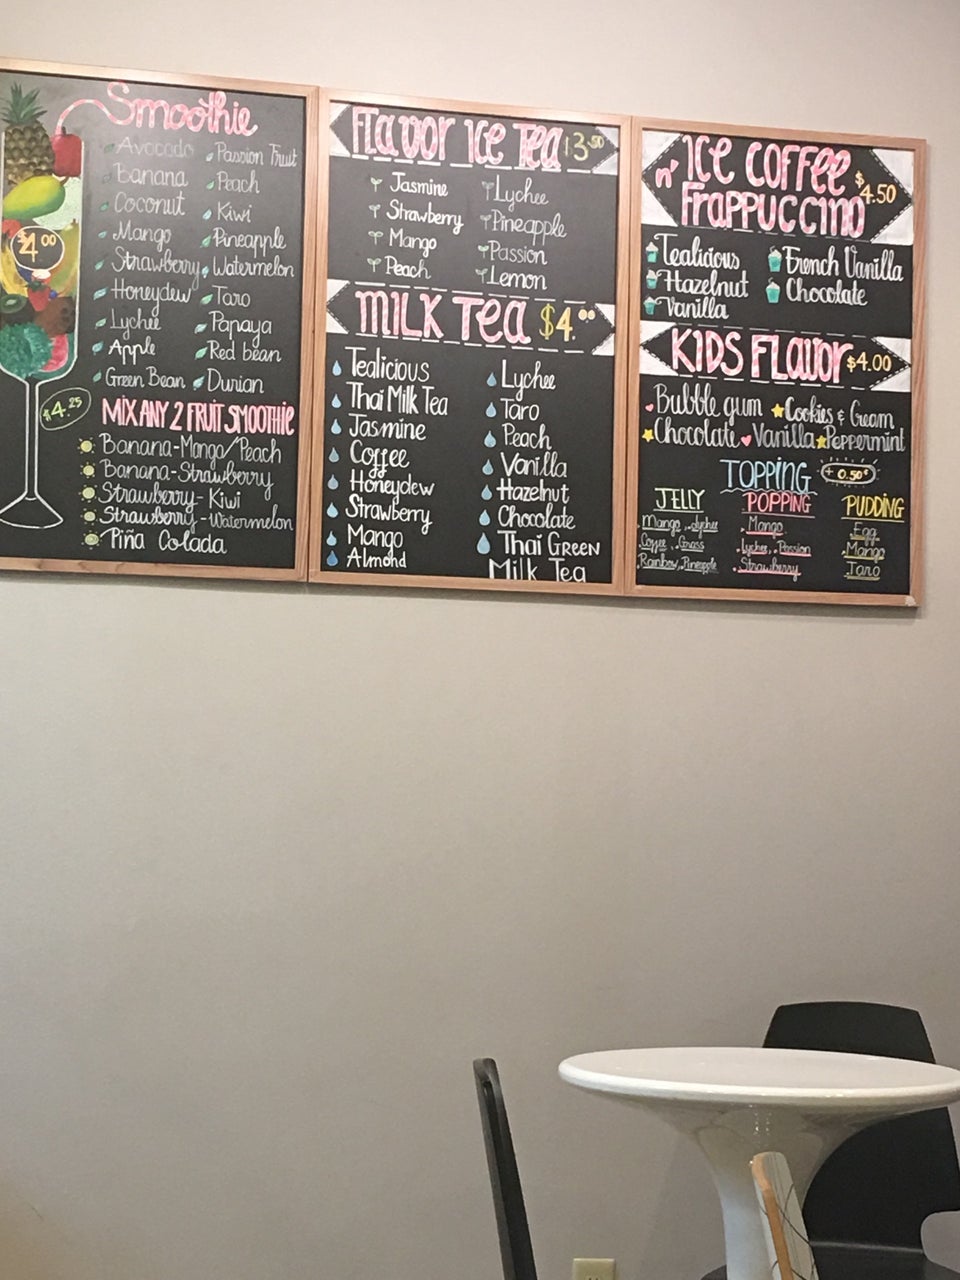 Smoothie
Avocado Passion Fruit
Banana Peach
Coconut Kiwi
Mango Pineapple
Strawberry Watermelon
Honeydew Taro
Lychee Papaya
Apple Red bean
Green Bean Durian
$4.00
$4.25
MIX ANY 2 FRUIT SMOOTHIE
Banana-Mango/Peach
Banana-Strawberry
Strawberry-Kiwi
Strawberry-Watermelon
Piña Colada
Flavor Ice Tea $3.50
Jasmine Lychee
Strawberry Pineapple
Mango Passion
Peach Lemon
MILK TEA $4.00
Tealicious Lychee
Thai Milk Tea Taro
Jasmine Peach
Coffee Vanilla
Honeydew Hazelnut
Strawberry Chocolate
Mango Thai Green
Almond Milk Tea
ICE COFFEE
n' FRAPPUCCINO $4.50
Tealicious French Vanilla
Hazelnut Chocolate
Vanilla
KIDS FLAVOR $4.00
Bubble gum Cookies & Cream
Chocolate Vanilla Peppermint
TOPPING + 0.50¢
JELLY POPPING PUDDING
Mango Lychee Mango Egg
Coffee Grass Lychee Passion Mango
Rainbow Pineapple Strawberry Taro